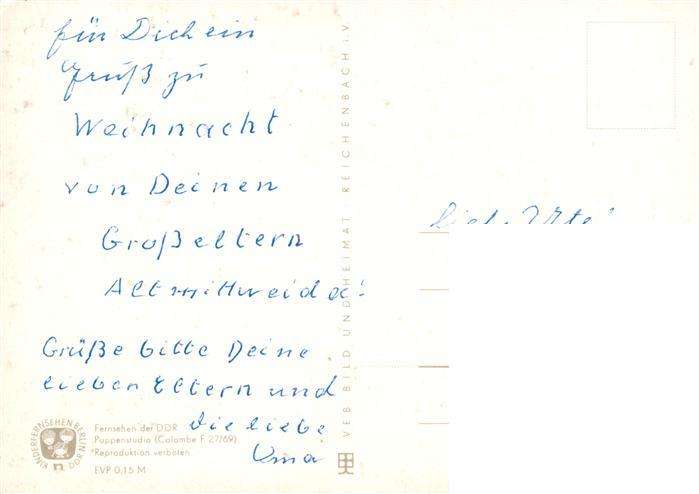 für Dich ein
Gruß zu
Weihnacht
von Deinen
Großeltern
Altmittweida!
Grüße bitte Deine
lieben Eltern und
die liebe
Oma
KINDERFERNSEHEN BERLIN DDR
Fernsehen der DDR
Puppenstudio (Colombe F 27/69)
Reproduktion verboten
EVP 0,15 M
VEB BILD UND HEIMAT REICHENBACH I.V.